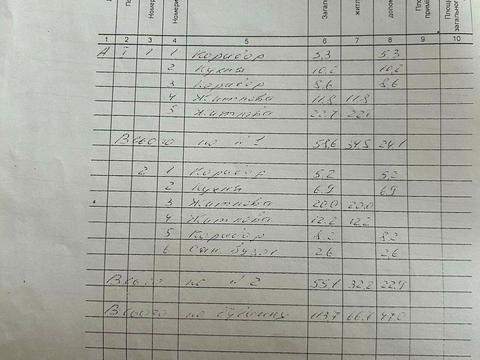 Номери
Загаль
житл
допом
Площ
прима
Площа
загального
1 2 3 4 5 6 7 8 9 10
А І 1 1 Коридор 5,3 5,3
2 Кухня 10,2 10,2
3 Коридор 8,6 8,6
4 Житлова 11,8 11,8
5 Житлова 22,7 22,7
Всього по № 1 58,6 34,5 24,1
2 1 Коридор 5,2 5,2
2 Кухня 6,9 6,9
3 Житлова 20,0 20,0
4 Житлова 12,2 12,2
5 Коридор 8,2 8,2
6 Сан. вузол 2,6 2,6
Всього по № 2 55,1 32,2 22,9
Всього по будинку 113,7 66,7 47,0